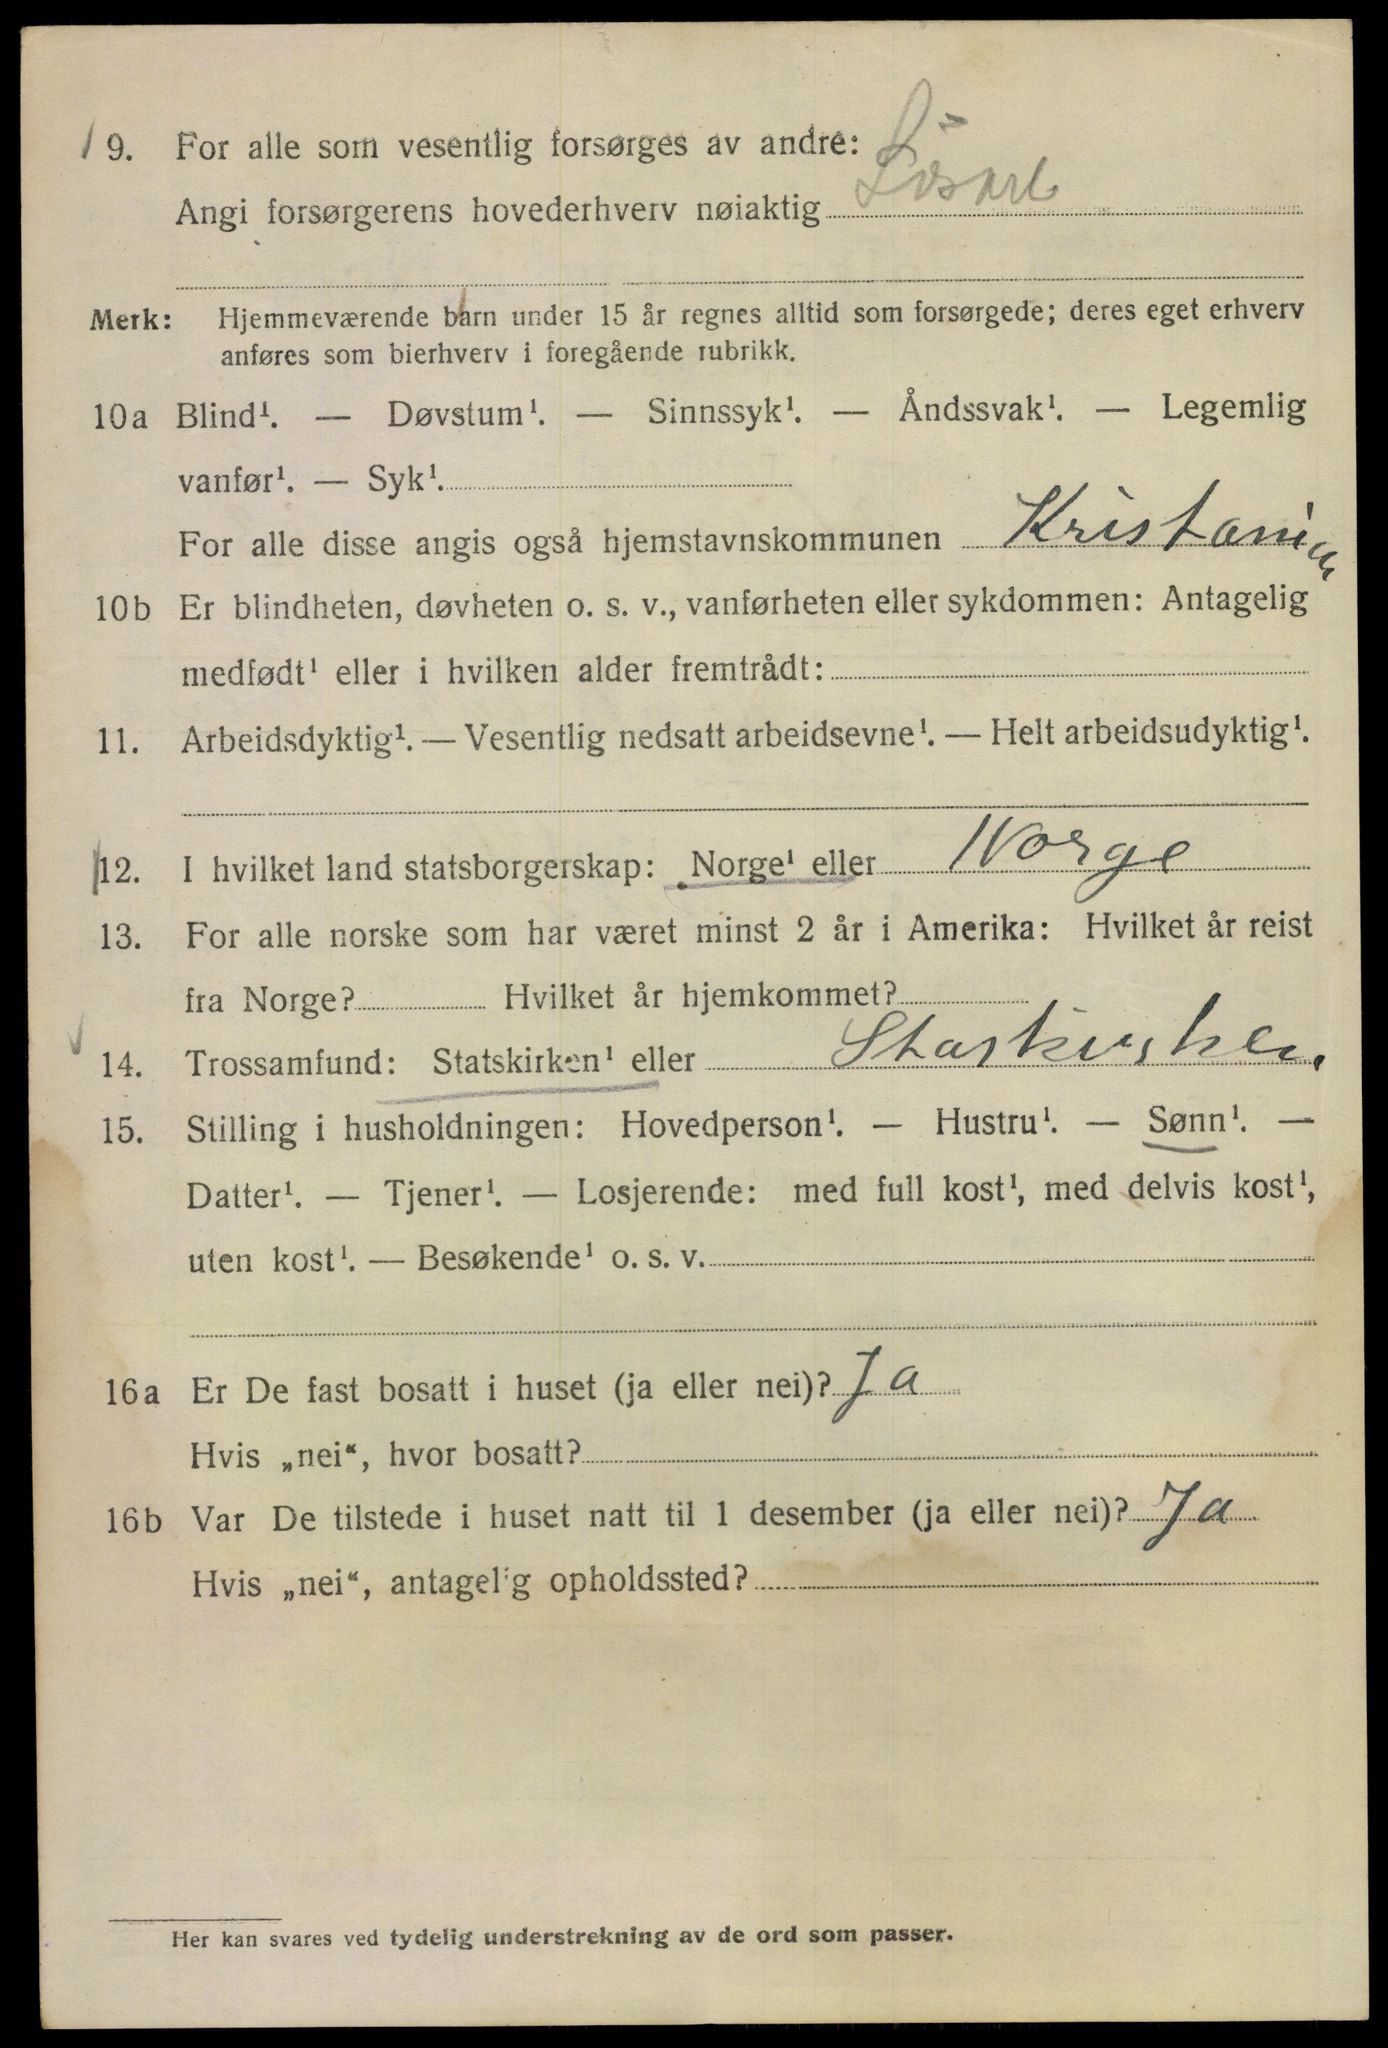 9. For alle som vesentlig forsørges av andre:
Angi forsørgerens hovederhverv nøiaktig Løsarb
Merk: Hjemmeværende barn under 15 år regnes alltid som forsørgede; deres eget erhverv
anføres som bierhverv i foregående rubrikk.
10a Blind¹. — Døvstum¹. — Sinnssyk¹. — Åndssvak¹. — Legemlig
vanfør¹. — Syk¹.
For alle disse angis også hjemstavnskommunen Kristania
10b Er blindheten, døvheten o. s. v., vanførheten eller sykdommen: Antagelig
medfødt¹ eller i hvilken alder fremtrådt:
11. Arbeidsdyktig¹. — Vesentlig nedsatt arbeidsevne¹. — Helt arbeidsudyktig¹.
12. I hvilket land statsborgerskap: Norge¹ eller Norge
13. For alle norske som har været minst 2 år i Amerika: Hvilket år reist
fra Norge? Hvilket år hjemkommet?
14. Trossamfund: Statskirken¹ eller
15. Stilling i husholdningen: Hovedperson¹. — Hustru¹. — Sønn¹. —
Datter¹. — Tjener¹. — Losjerende: med full kost¹, med delvis kost¹,
uten kost¹. — Besøkende¹ o. s. v.
16a Er De fast bosatt i huset (ja eller nei)? Ja
Hvis „nei“, hvor bosatt?
16b Var De tilstede i huset natt til 1 desember (ja eller nei)? Ja
Hvis „nei“, antagelig opholdssted?
Her kan svares ved tydelig understrekning av de ord som passer.